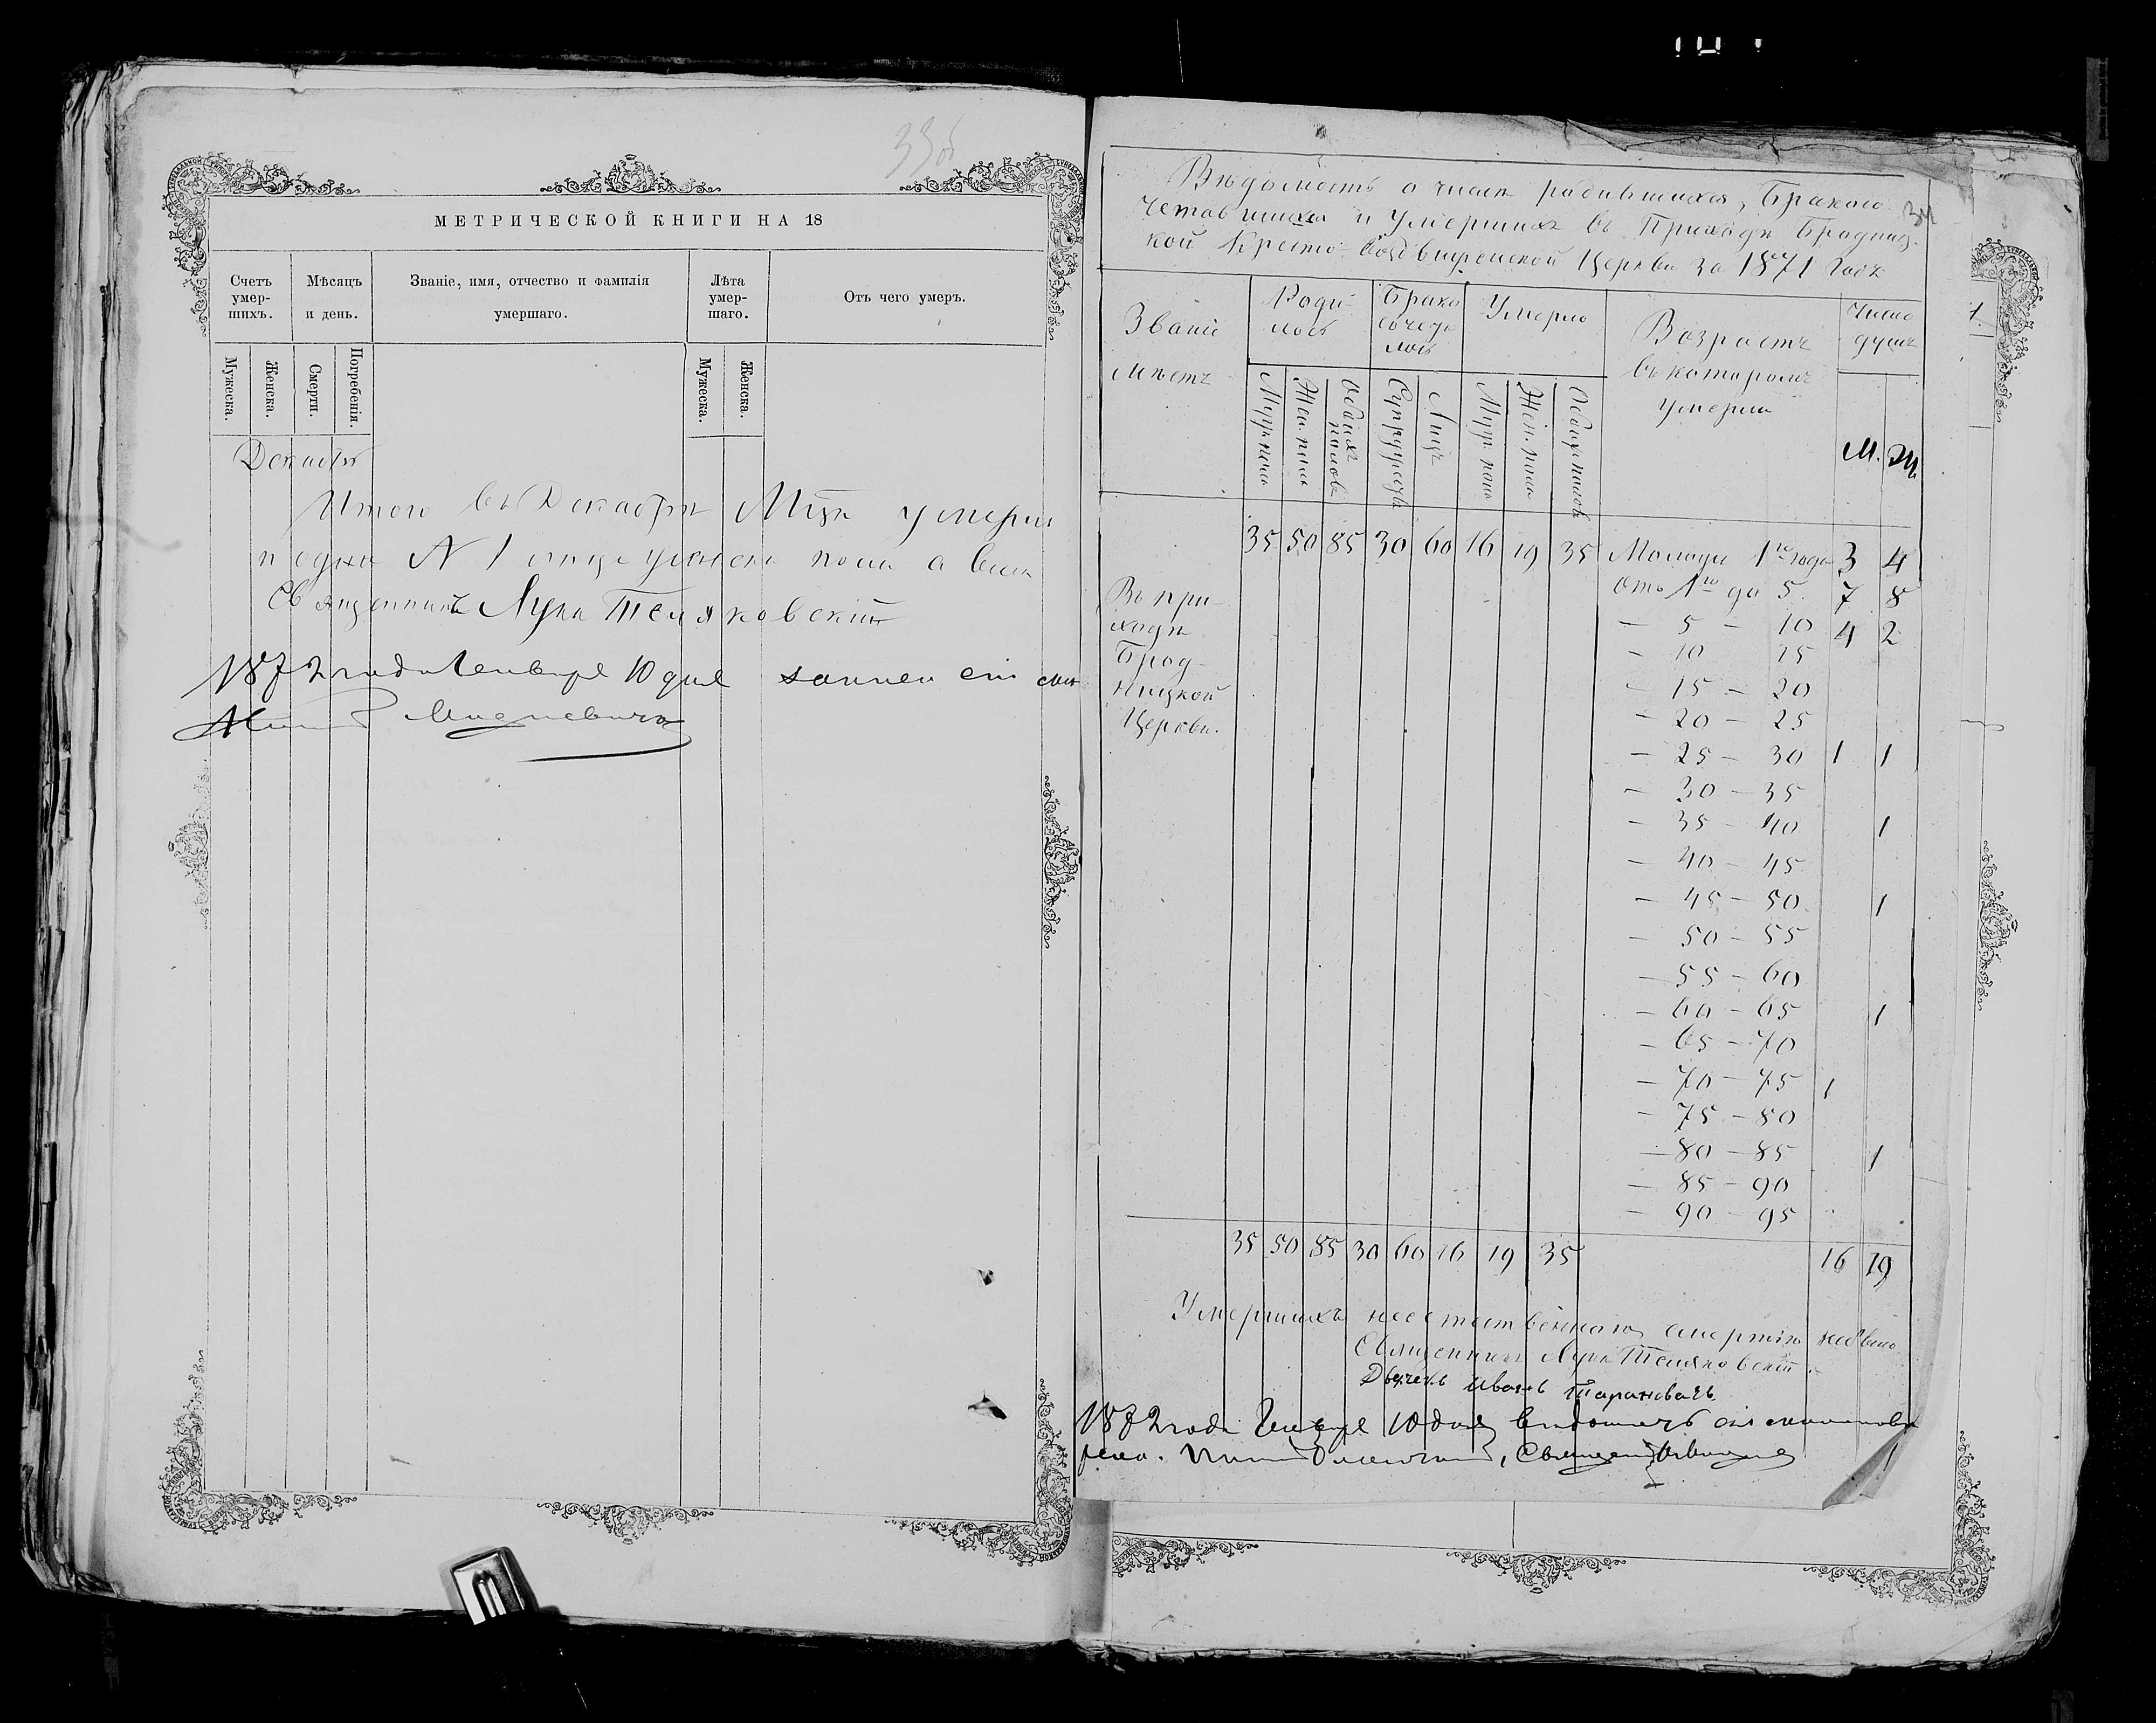 33об
МЕТРИЧЕСКОЙ КНИГИ НА 18
Счетъ умер-шихъ.
Мѣсяцъ и день.
Званіе, имя, отчество и фамилія умершаго.
Лѣта умер-шаго.
Отъ чего умеръ.
Мужеска.
Женска.
Смерти.
Погребенія.
Мужеска.
Женска.
Декабрь
Итого въ Декабрѣ Мцѣ умерло
N 1 лице пола а всѣхъ
Священникъ Лука Теляковскій
1872 года Генваря 10 дня
34
Вѣдомость о числѣ родившихся, Бракосо-
четавшихся и Умершихъ въ Приходѣ Бродниц-
кой Кресто-Воздвиженской Церкви за 1871 Годъ
Званіе мѣстъ
Роди-лось
Брако сочета лось
Умерло
Возрастъ въ которомъ умерли
Число душъ
Муж. пола
Жен. пола
Обоихъ половъ
Супружествъ
Лицъ
Муж. пола
Жен. пола
Обоихъ половъ
М. Ж.
35 50 85 30 60 16 19 35 Моложе 1го года 3 4
Въ при- отъ 1го до 5 7 8
ходѣ — 5 — 10 4 2
Брод- — 10 15
ницкой — 15 — 20
Церкви. — 20 — 25
— 25 — 30 1 1
— 30 — 35
— 35 — 40 1
— 40 — 45
— 45 — 50 1
— 50 — 55
— 55 — 60
— 60 — 65 1
— 65 — 70
— 70 — 75 1
— 75 — 80
— 80 — 85 1
— 85 — 90
— 90 — 95
35 50 85 30 60 16 19 35 16 19
Умершихъ неестественною смертію небыло
Священникъ Лука Теляковскій
Дьячекъ Иванъ
1872 года Генваря 10 дня